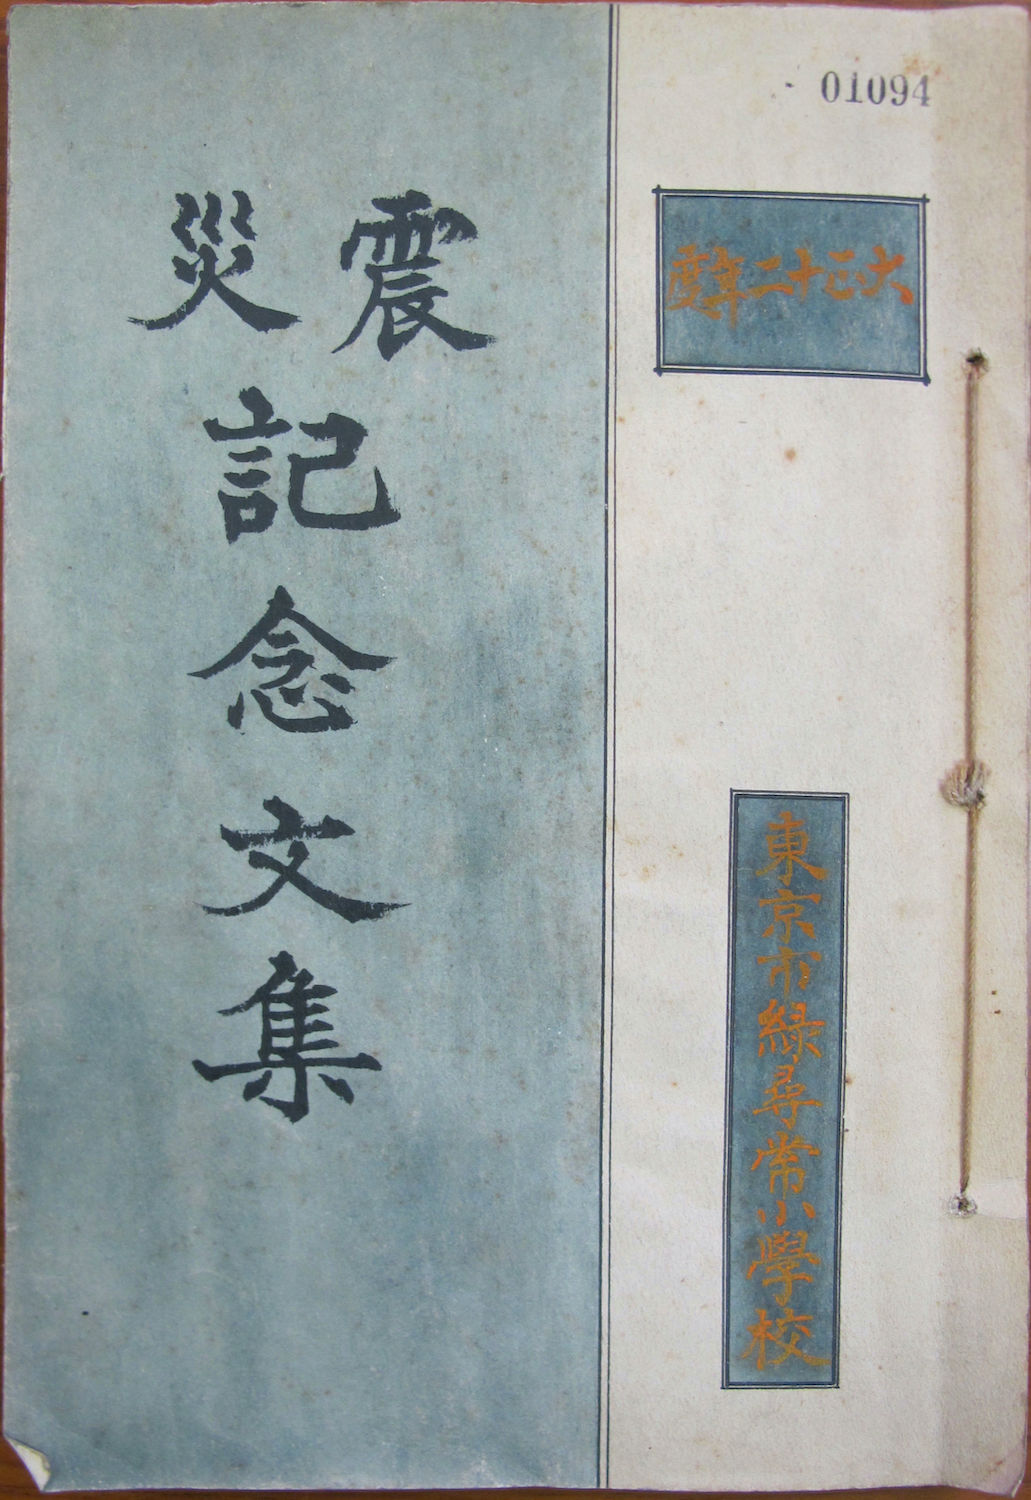 01094
大正十二年度
東京市緑尋常小學校
震災
記念文集